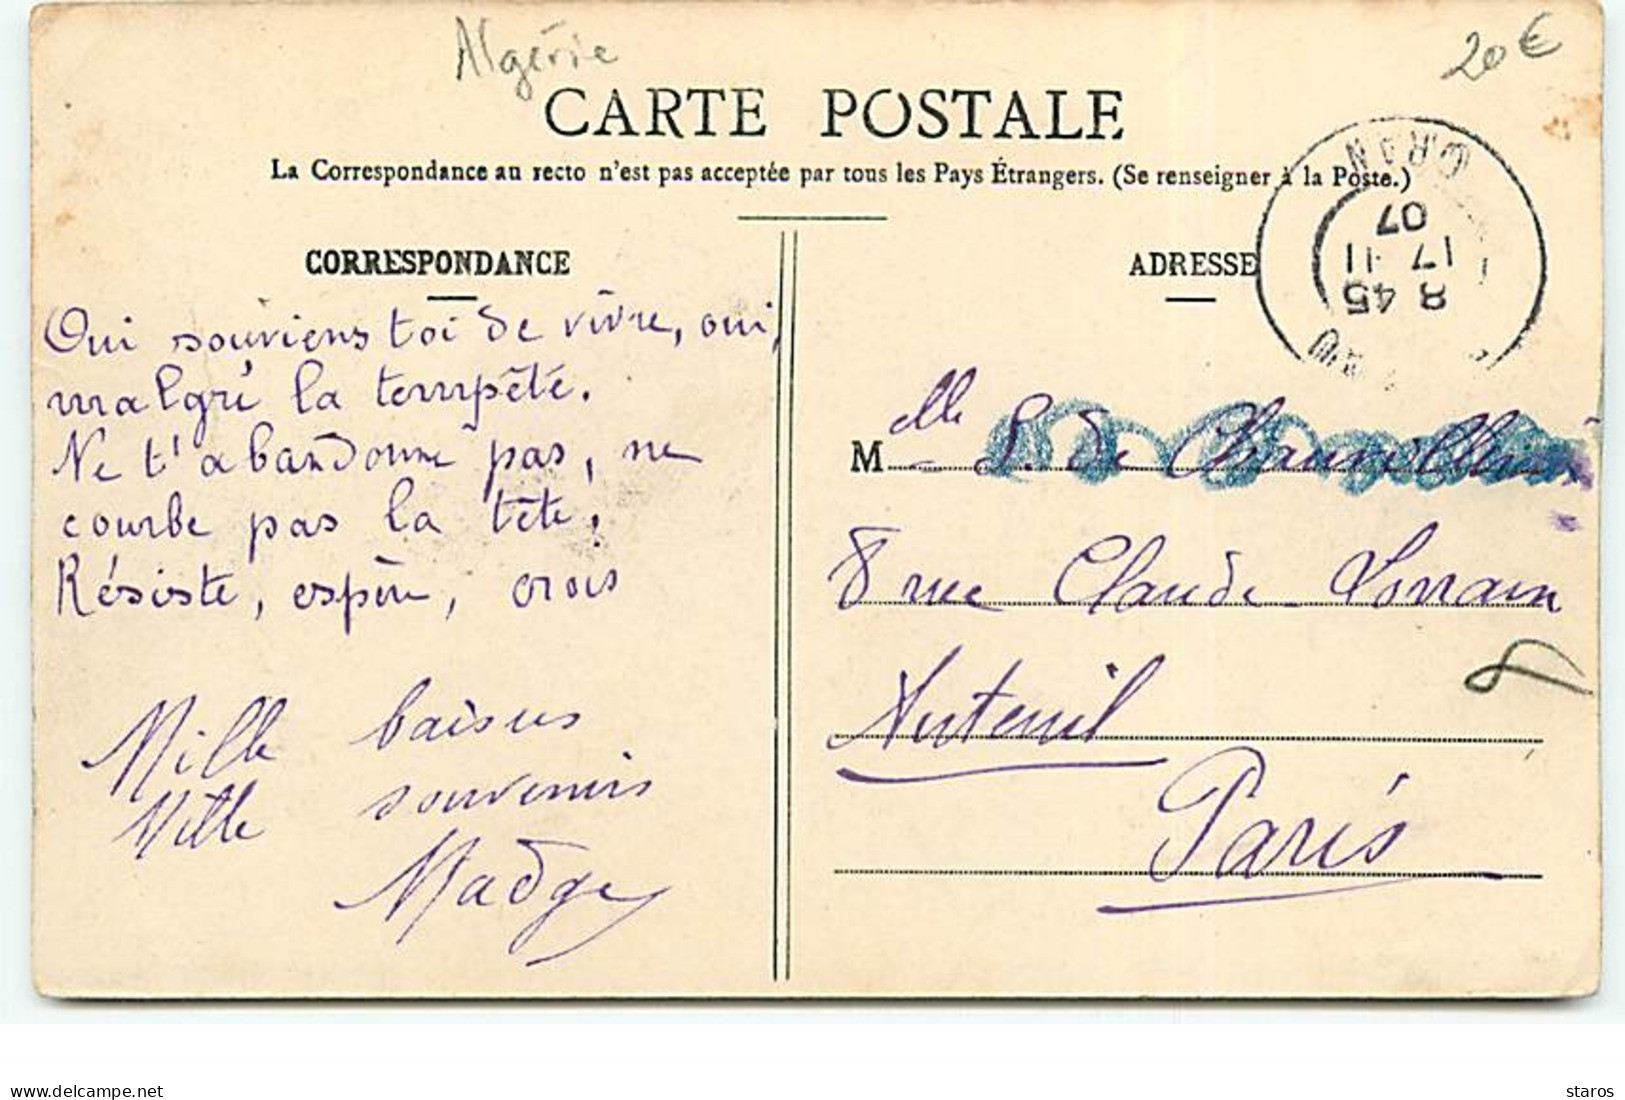 Algérie
20€
CARTE POSTALE
La Correspondance au recto n'est pas acceptée par tous les Pays Étrangers. (Se renseigner à la Poste.)
ORAN
8 45
17 11
07
ORAN
CORRESPONDANCE
Oui souviens toi de vivre, oui,
malgré la tempête.
Ne t'abandonne pas, ne
courbe pas la tête,
Résiste, espère, crois
Mille baisers
Mille souvenirs
Madge
ADRESSE
Melle de
8 rue Claude Lorrain
Auteuil
Paris
8
delcampe.net
staros